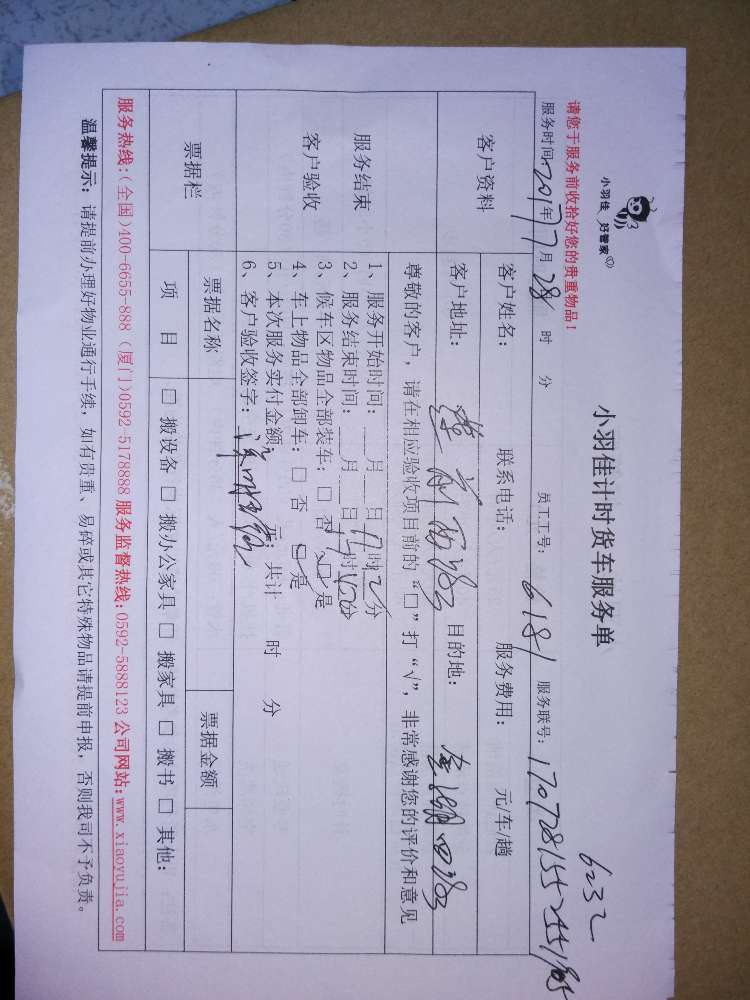 小羽佳 好管家
小羽佳计时货车服务单
6232
请您于服务前收拾好您的贵重物品!
服务时间: 2017年7月28 时 分 员工工号: 6181 服务联号:
客户资料
客户姓名: 联系电话: 服务费用: 元/车/趟
客户地址: 莲前西路 目的地: 金湖四路
尊敬的客户，请在相应验收项目前的“□”打“√”，非常感谢您的评价和意见
服务结束
客户验收
1、服务开始时间: 月 日17时12分
2、服务结束时间: 月 日17时
3、候车区物品全部装车: □ 否 □是
4、车上物品全部卸车: □ 否 □是
5、本次服务实付金额: 元; 共计 时 分
6、客户验收签字:
票据栏
票据名称 票据金额
项 目 □ 搬设备 □ 搬办公家具 □ 搬家具 □ 搬书 □ 其他:
服务热线:(全国)400-6655-888 (厦门)0592-5178888 服务监督热线:0592-5888123 公司网站:www.xiaoyujia.com
温馨提示: 请提前办理好物业通行手续，如有贵重、易碎或其它特殊物品请提前申报，否则我司不予负责。